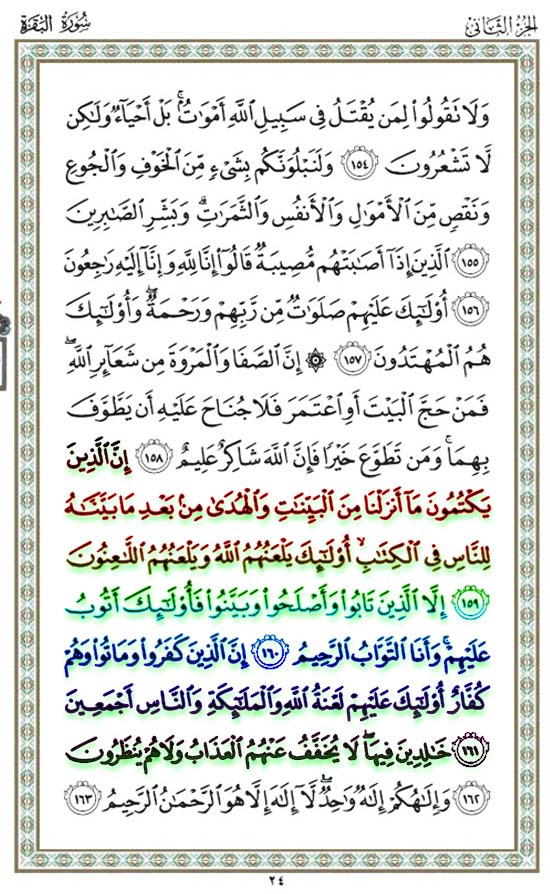 الجزء الثاني
سورة البقرة
وَلَا تَقُولُوا۟ لِمَن يُقْتَلُ فِى سَبِيلِ ٱللَّهِ أَمْوَٰتٌۢ ۚ بَلْ أَحْيَآءٌ وَلَٰكِن
لَّا تَشْعُرُونَ ١٥٤ وَلَنَبْلُوَنَّكُم بِشَىْءٍ مِّنَ ٱلْخَوْفِ وَٱلْجُوعِ
وَنَقْصٍ مِّنَ ٱلْأَمْوَٰلِ وَٱلْأَنفُسِ وَٱلثَّمَرَٰتِ ۗ وَبَشِّرِ ٱلصَّٰبِرِينَ
١٥٥ ٱلَّذِينَ إِذَآ أَصَٰبَتْهُم مُّصِيبَةٌ قَالُوٓا۟ إِنَّا لِلَّهِ وَإِنَّآ إِلَيْهِ رَٰجِعُونَ
١٥٦ أُو۟لَٰٓئِكَ عَلَيْهِمْ صَلَوَٰتٌ مِّن رَّبِّهِمْ وَرَحْمَةٌ ۖ وَأُو۟لَٰٓئِكَ
هُمُ ٱلْمُهْتَدُونَ ١٥٧ ۞ إِنَّ ٱلصَّفَا وَٱلْمَرْوَةَ مِن شَعَآئِرِ ٱللَّهِ ۖ
فَمَنْ حَجَّ ٱلْبَيْتَ أَوِ ٱعْتَمَرَ فَلَا جُنَاحَ عَلَيْهِ أَن يَطَّوَّفَ
بِهِمَا ۚ وَمَن تَطَوَّعَ خَيْرًا فَإِنَّ ٱللَّهَ شَاكِرٌ عَلِيمٌ ١٥٨ إِنَّ ٱلَّذِينَ
يَكْتُمُونَ مَآ أَنزَلْنَا مِنَ ٱلْبَيِّنَٰتِ وَٱلْهُدَىٰ مِنۢ بَعْدِ مَا بَيَّنَّٰهُ
لِلنَّاسِ فِى ٱلْكِتَٰبِ ۙ أُو۟لَٰٓئِكَ يَلْعَنُهُمُ ٱللَّهُ وَيَلْعَنُهُمُ ٱللَّٰعِنُونَ
١٥٩ إِلَّا ٱلَّذِينَ تَابُوا۟ وَأَصْلَحُوا۟ وَبَيَّنُوا۟ فَأُو۟لَٰٓئِكَ أَتُوبُ
عَلَيْهِمْ ۚ وَأَنَا ٱلتَّوَّابُ ٱلرَّحِيمُ ١٦٠ إِنَّ ٱلَّذِينَ كَفَرُوا۟ وَمَاتُوا۟ وَهُمْ
كُفَّارٌ أُو۟لَٰٓئِكَ عَلَيْهِمْ لَعْنَةُ ٱللَّهِ وَٱلْمَلَٰٓئِكَةِ وَٱلنَّاسِ أَجْمَعِينَ
١٦١ خَٰلِدِينَ فِيهَا ۖ لَا يُخَفَّفُ عَنْهُمُ ٱلْعَذَابُ وَلَا هُمْ يُنظَرُونَ
١٦٢ وَإِلَٰهُكُمْ إِلَٰهٌ وَٰحِدٌ ۖ لَّآ إِلَٰهَ إِلَّا هُوَ ٱلرَّحْمَٰنُ ٱلرَّحِيمُ ١٦٣
٢٤